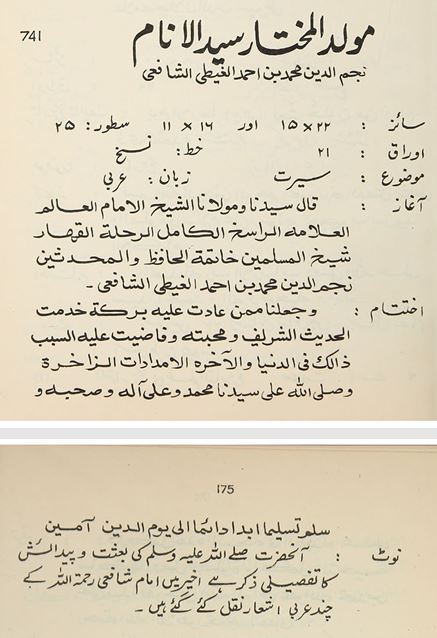 741
مولد المختار سید الانام
نجم الدین محمد بن احمد الغیطی الشافعی
سائز : ۲۲ × ۱۵ اور ۱۶ × ۱۱ سطور : ۲۵
اوراق : ۲۱ خط : نسخ
موضوع : سیرت زبان : عربی
آغاز : قال سیدنا ومولانا الشیخ الامام العالم
العلامه الراسخ الکامل الرحلة القهار
شیخ المسلمین خاتمة الحافظ والمحدثین
نجم الدین محمد بن احمد الغیطی الشافعی ۔
اختتام : وجعلنا ممن عادت علیه برکة خدمت
الحدیث الشریف ومحبته وفاضیت علیه السبب
ذالک فی الدنیا والآخره الامدادات الزاخرة
وصلی الله علی سیدنا محمد وعلی آله وصحبه و
175
سلم تسلیما ابدا دائما الی یوم الدین آمین
نوٹ : آنحضرت صلے اللہ علیہ وسلم کی بعثت و پیدائش
کا تفصیلی ذکر ہے اخیر میں امام شافعی رحمۃ اللہ کے
چند عربی اشعار نقل کئے گئے ہیں ۔